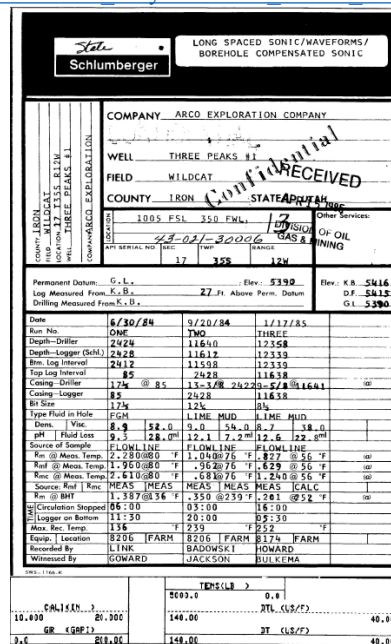 State
Schlumberger
LONG SPACED SONIC/WAVEFORMS/
BOREHOLE COMPENSATED SONIC
COUNTY IRON
FIELD WILDCAT
LOCATION 17 T35S R12W
WELL THREE PEAKS #1
COMPANY ARCO EXPLORATION
COMPANY ARCO EXPLORATION COMPANY
WELL THREE PEAKS #1
FIELD WILDCAT
COUNTY IRON STATE UTAH
Confidential
RECEIVED
DIVISION OF OIL
GAS & MINING
LOCATION
1005 FSL 350 FWL,
43-021-30006
Other Services:
API SERIAL NO SEC TWP RANGE
17 35S 12W
Permanent Datum: G.L. Elev.: 5390 Elev.: K.B. 5416
Log Measured From K.B. 27 Ft. Above Perm. Datum D.F. 5415
Drilling Measured From K.B. G.L. 5390
Date 6/30/84 9/20/84 1/17/85
Run No. ONE TWO THREE
Depth-Driller 2424 11640 12358
Depth-Logger (Schl.) 2428 11612 12339
Btm. Log Interval 2412 11598 12339
Top Log Interval 85 2428 11638
Casing-Driller 17½ @ 85 13-3/8 2422 9-5/8 @ 11641 @
Casing-Logger 85 2428 11638
Bit Size 17½ 12¼ 8½
Type Fluid in Hole FGM LIME MUD LIME MUD
Dens. Visc. 8.9 52.0 9.0 54.0 8.7 38.0
pH Fluid Loss 9.3 28.0 ml 12.1 7.2 ml 12.6 22.8 ml
Source of Sample FLOWLINE FLOWLINE FLOWLINE
Rm @ Meas. Temp. 2.280@80 °F 1.040@76 °F .827 @ 56 °F @
Rmf @ Meas. Temp. 1.960@80 °F .962@76 °F .629 @ 56 °F @
Rmc @ Meas. Temp. 2.610@80 °F .681@76 °F 1.240 @ 56 °F @
Source: Rmf Rmc MEAS MEAS MEAS MEAS MEAS CALC
Rm @ BHT 1.387@136 °F .350 @239 °F .201 @252 °F @
TIME Circulation Stopped 06:00 03:00 16:00
Logger on Bottom 11:30 20:00 05:30
Max. Rec. Temp. 136 °F 239 °F 252 °F
Equip. Location 8206 FARM 8206 FARM 8174 FARM
Recorded By LINK BADOWSKI HOWARD
Witnessed By GOWARD JACKSON BULKEMA
SWS-1166-K
TENS(LB )
5000.0 0.0
CALI(IN ) DTL (US/F)
10.000 20.000 140.00 40.0
GR (GAPI) DT (US/F)
0.0 200.00 140.00 40.0